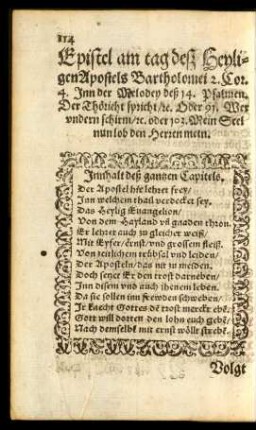 114
Epistel am tag deß Heyli-
gen Apostels Bartholomei 2. Cor.
4. Inn der Melodey deß 14. Psalmen.
Der Thöricht spricht/ɾc. Oder 91. Wer
vndern schirm/ɾc. oder 103. Mein Seel
nun lob den Herren mein.
Innhalt deß gantzen Capitels,
Der Apostel hie lehret frey/
Inn welchem thail verdecket sey.
Das Heylig Euangelion/
Von dem Hayland vñ gnaden thron.
Er lehret auch zu gleicher weiß/
Mit Eyfer/ ernst/ vnd grossem fleiß.
Von zeitlichem trübsal vnd leiden/
Der Aposteln/ das nit zu meiden.
Doch setzet Er den trost darneben/
Inn disem vnd auch ihenem leben.
Da sie sollen inn frewden schweben/
Ir knecht Gottes dē trost merckt ebē.
Gott will dorten den lohn euch gebē/
Nach demselbē mit ernst wöllt strebē.
Volgt